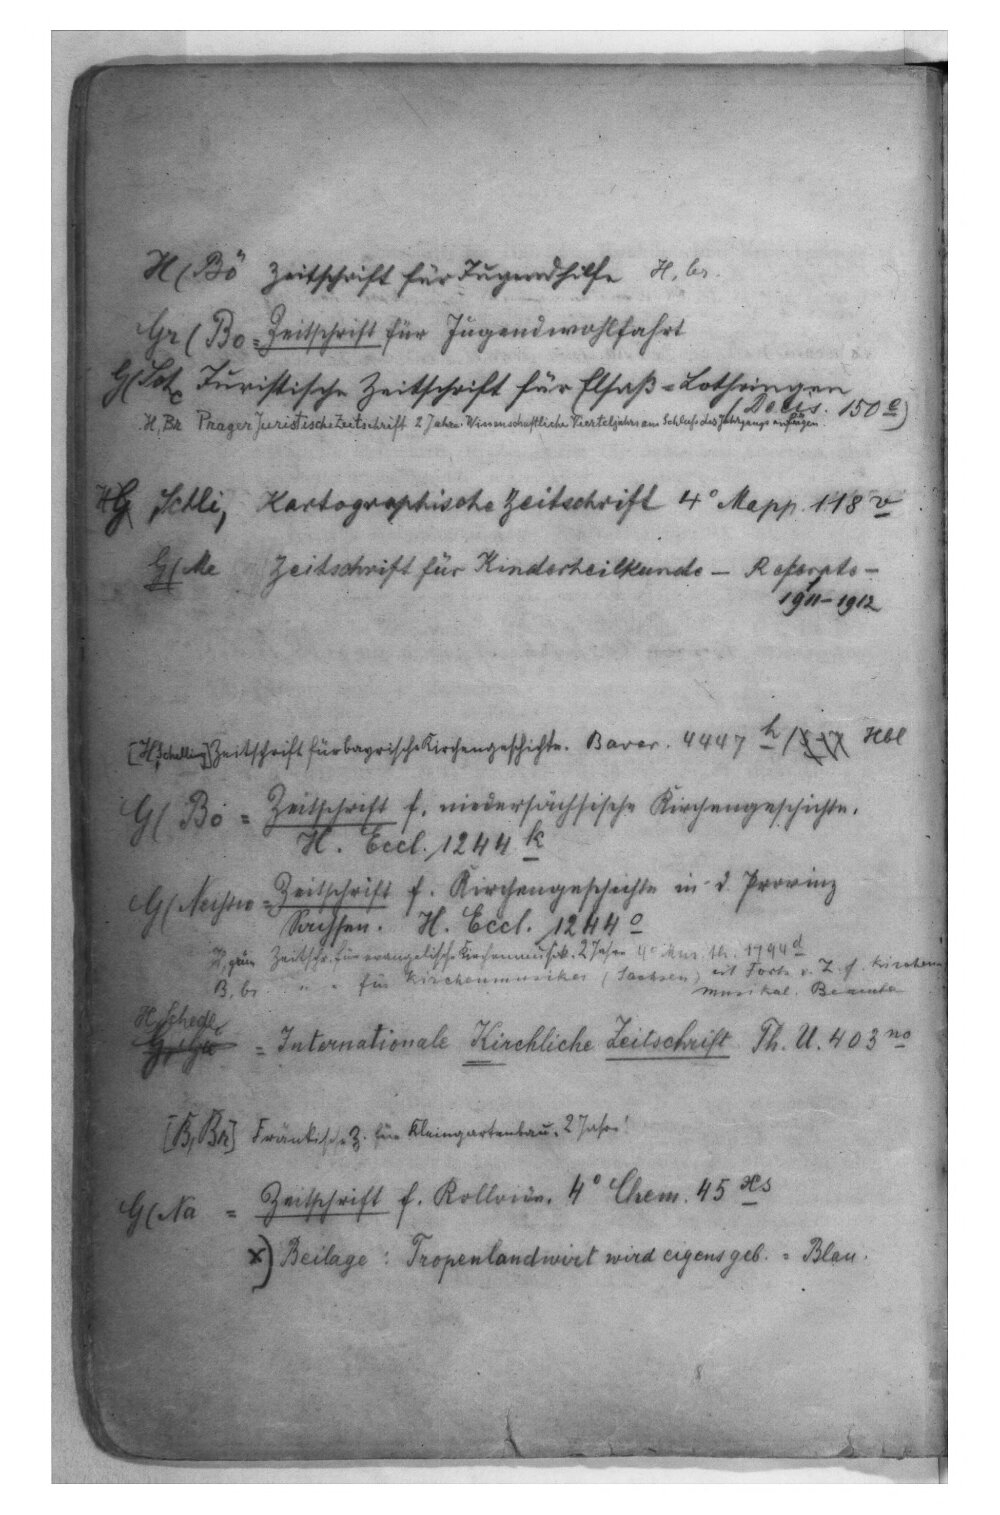 H ( Bö Zeitschrift für Jugendhilfe H. br.
Gr ( Bo = Zeitschrift für Jugendwohlfahrt
G ( Juristische Zeitschrift für Elsaß = Lothringen
( Decis. 150 e )
H, Br Prager Juristische Zeitschrift 2 Jahre. Wissenschaftliche Vierteljahrs am Schluß des Jahrgangs anfügen.
HG Schli, Kartographische Zeitschrift 4° Mapp. 118 v
G ( Me Zeitschrift für Kinderheilkunde — Referate —
1911 – 1912
[H, Schelling] Zeitschrift für bayrische Kirchengeschichte. Bavar. 4447 h / Hbl
G ( Bö = Zeitschrift f. niedersächsische Kirchengeschichte.
H. Eccl. 1244 k
G ( = Zeitschrift f. Kirchengeschichte in d. Provinz
Sachsen. H. Eccl. 1244 o
H, grün Zeitschr. für evangelische Kirchenmusik. 2 Jahre 4° Mus. th. 1794 d
B, br. " " für Kirchenmusiker (Sachsen) mit Forts. v. Z. f. Kirchen
musikal. Beamte
H, Schedl
= Internationale Kirchliche Zeitschrift Th. U. 403 no
[B, Br] Fränkische Z. für Kleingartenbau. 2 Jahre!
G ( Na = Zeitschrift f. 4° Chem. 45 xs
x) Beilage : Tropenlandwirt wird eigens geb. = Blau.